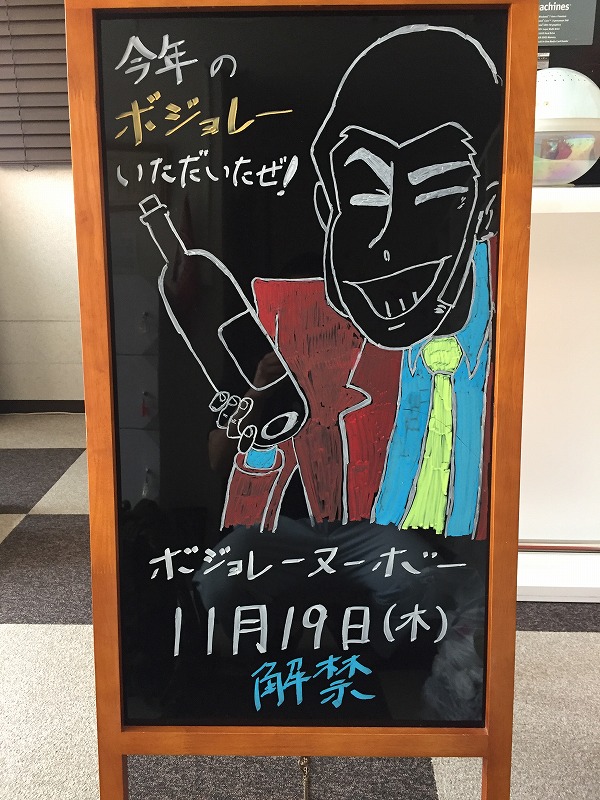 今年の
ボジョレー
いただいたぜ!
ボジョレーヌーボー
11月19日(木)
解禁
achines